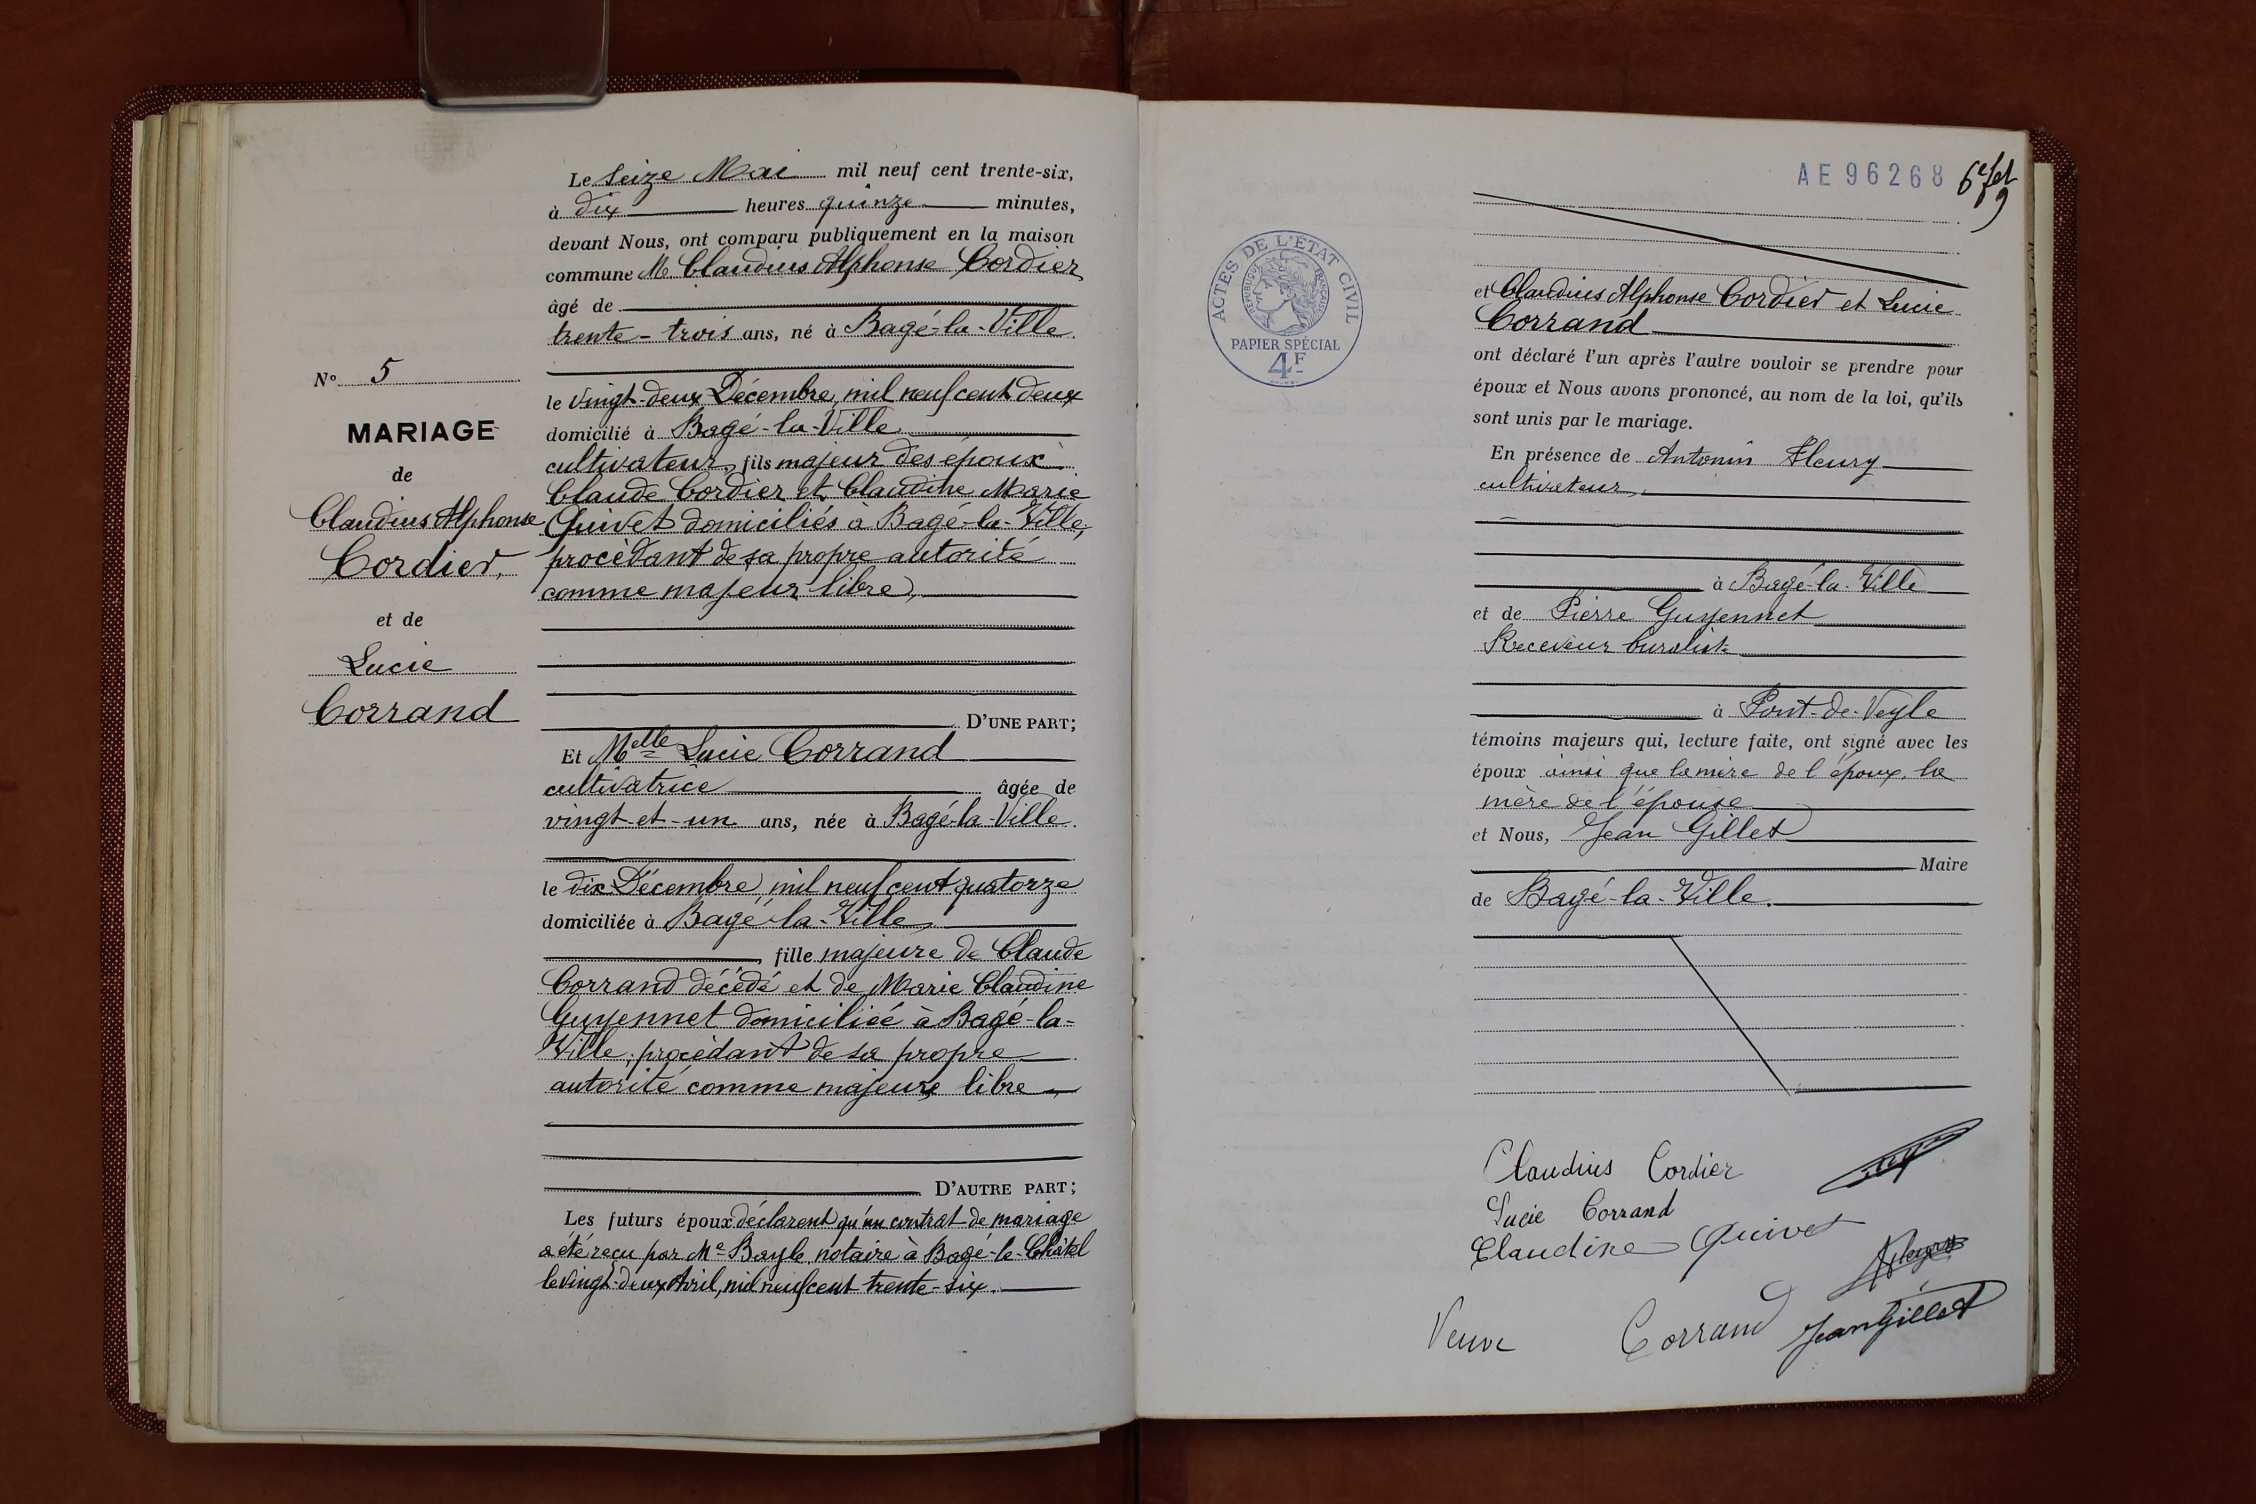 Le seize Mai mil neuf cent trente-six,
à dix heures quinze minutes,
devant Nous, ont comparu publiquement en la maison
commune M. Claudius Alphonse Cordier
âgé de
trente-trois ans, né à Bagé-la-Ville
le vingt-deux Décembre, mil neuf cent deux
domicilié à Bagé-la-Ville
cultivateur, fils majeur des époux
Claude Cordier et Claudine Marie
Quivet domiciliés à Bagé-la-Ville,
procédant de sa propre autorité
comme majeur libre,
D'UNE PART;
Et Melle Lucie Corrand
cultivatrice âgée de
vingt-et-un ans, née à Bagé-la-Ville
le dix Décembre, mil neuf cent quatorze
domiciliée à Bagé-la-Ville,
fille majeure de Claude
Corrand décédé et de Marie Claudine
Guyennet domiciliée à Bagé-la-
Ville, procédant de sa propre
autorité comme majeure libre,
D'AUTRE PART;
Les futurs époux déclarent qu'un contrat de mariage
a été reçu par Me Bayle, notaire à Bagé-le-Châtel
le vingt-deux Avril, mil neuf cent trente-six.
N° 5
MARIAGE
de
Claudius Alphonse
Cordier,
et de
Lucie
Corrand
AE 96268
ACTES DE L'ETAT CIVIL
REPUBLIQUE FRANCAISE
PAPIER SPÉCIAL
4F
et Claudius Alphonse Cordier et Lucie
Corrand
ont déclaré l'un après l'autre vouloir se prendre pour
époux et Nous avons prononcé, au nom de la loi, qu'ils
sont unis par le mariage.
En présence de Antonin Fleury
cultivateur,
à Bagé-la-Ville
et de Pierre Guyennet
Receveur buraliste
à Pont-de-Veyle
témoins majeurs qui, lecture faite, ont signé avec les
époux ainsi que la mère de l'époux, la
mère de l'épouse
et Nous, Jean Gillet
Maire
de Bagé-la-Ville.
Claudius Cordier
Lucie Corrand
Claudine Quivet
Veuve Corrand
Jean Gillet